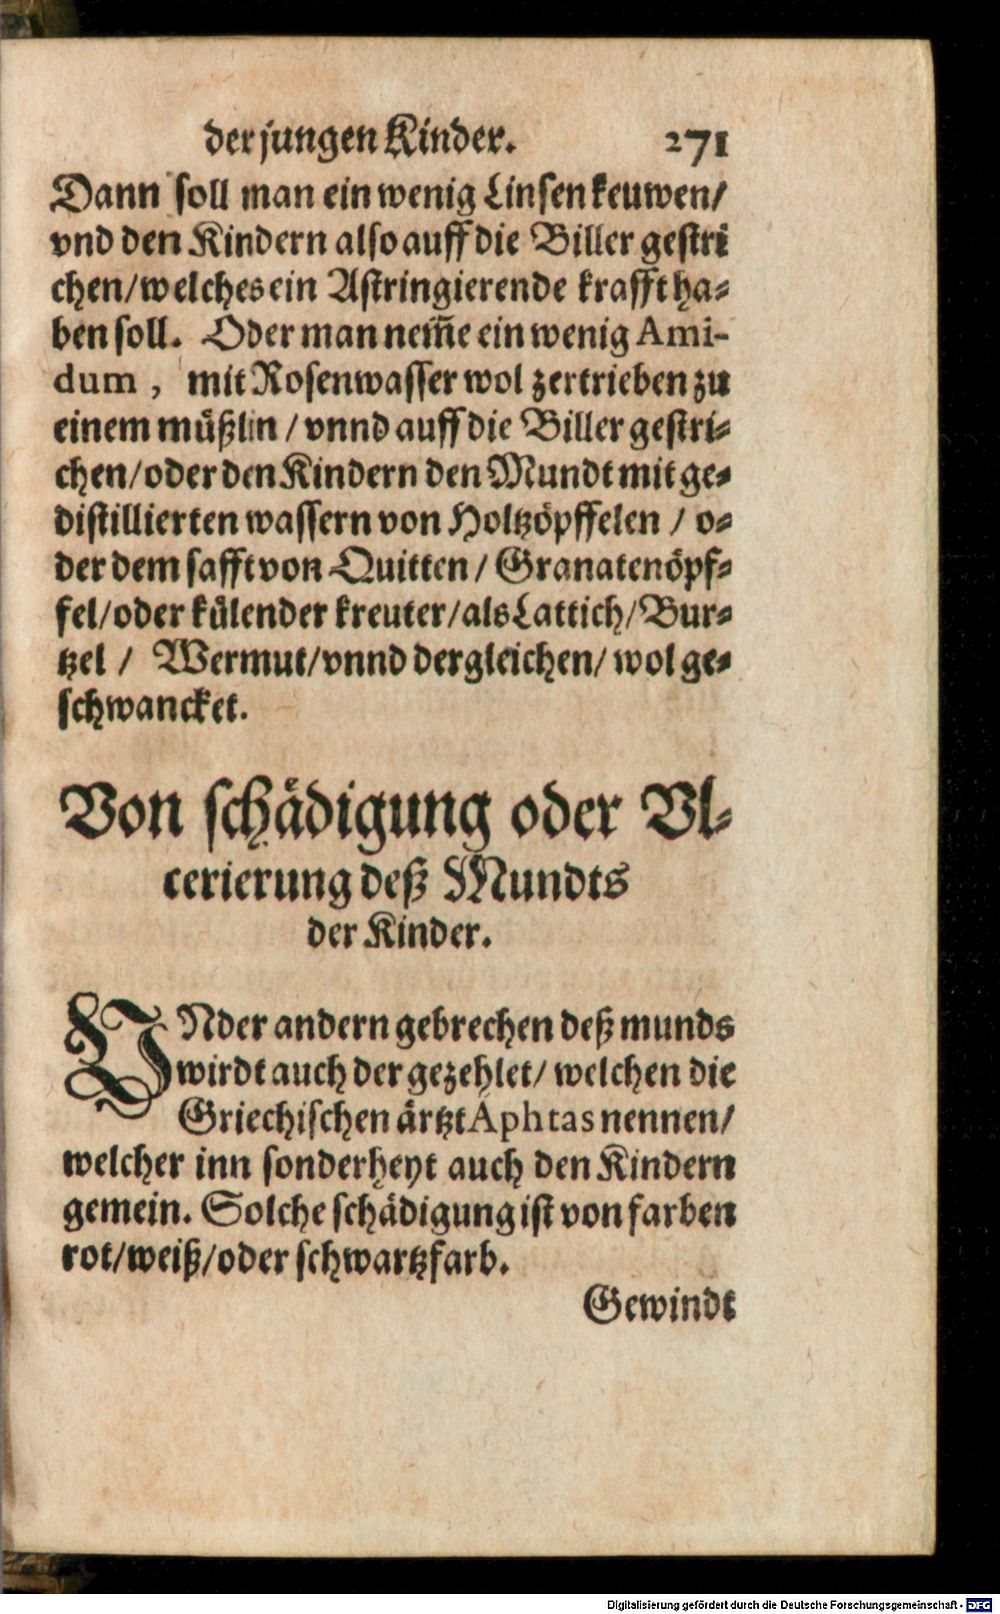 der jungen Kinder. 271
Dann soll man ein wenig Linsen keuwen/
vnd den Kindern also auff die Biller gestri
chen/welches ein Astringierende krafft ha-
ben soll. Oder man nem̃e ein wenig Ami-
dum, mit Rosenwasser wol zertrieben zu
einem müßlin / vnnd auff die Biller gestri-
chen/oder den Kindern den Mundt mit ge-
distillierten wassern von Holtzöpffelen / o-
der dem safft von Quitten / Granatenöpf-
fel/oder külender kreuter/als Lattich/Bur-
tzel / Wermut/vnnd dergleichen/ wol ge-
schwancket.
Von schädigung oder Vl-
cerierung deß Mundts
der Kinder.
VNder andern gebrechen deß munds
wirdt auch der gezehlet/ welchen die
Griechischen ärtzt Aphtas nennen/
welcher inn sonderheyt auch den Kindern
gemein. Solche schädigung ist von farben
rot/weiß/oder schwartzfarb.
Gewindt
Digitalisierung gefördert durch die Deutsche Forschungsgemeinschaft - DFG